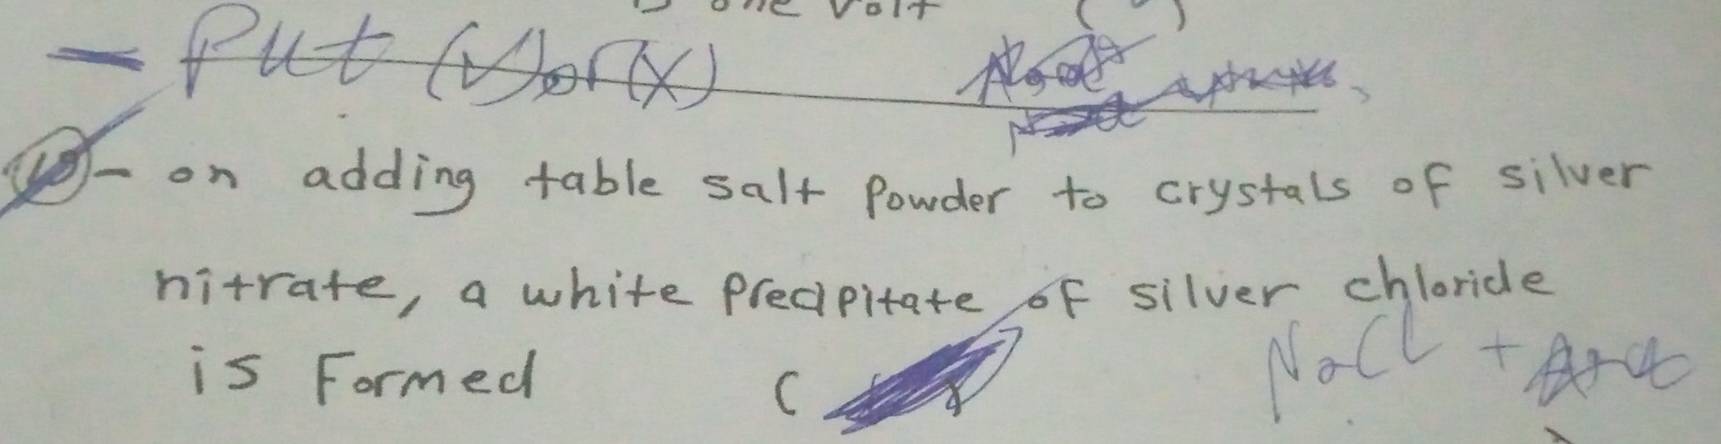 is one volt ( )
- Put (√) or (X)
10- on adding table salt Powder to crystals of silver
nitrate, a white Precipitate of silver chloride
is Formed (
NaCl +